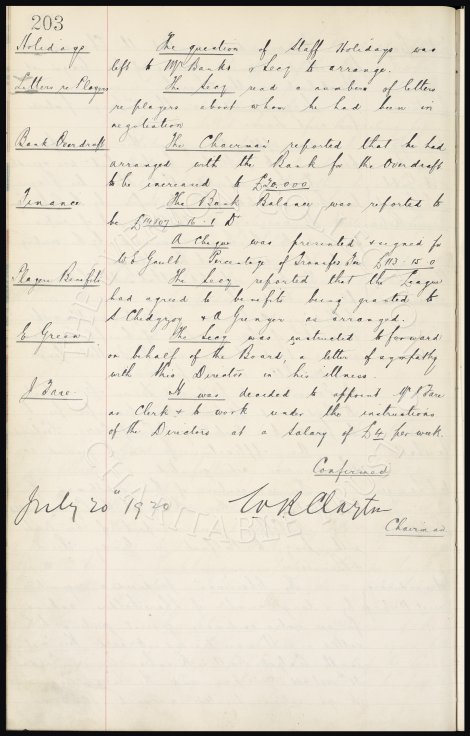 203
Holidays The question of Staff Holidays was
left to Mr Banks & Secy to arrange.
Letters re Players The Secy read a numbers of letters
re players about whom he had been in
negotiation
Bank Overdraft The Chairman reported that he had
arranged with the Bank for the Overdraft
to be increased to £20,000
Finance The Bank Balance was reported to
be 16 . 1 D
A Cheque was presented & signed for
W E Gault Percentage of Transfer Fee £113 . 15 . 0
Players Benefits The Secy reported that the League
had agreed to benefits being granted to
S Chedgzoy & A Grenyer as arranged.
E Green The Secy was instructed to forward
on behalf of the Board, a letter of sympathy
with this Director in his illness.
J Fare It was decided to appoint Mr J Fare
as Clerk & to work under the instructions
of the Directors at a salary of £4 per week.
Confirmed
July 20th 1920 W R Clayton
Chairman
CHARITABLE